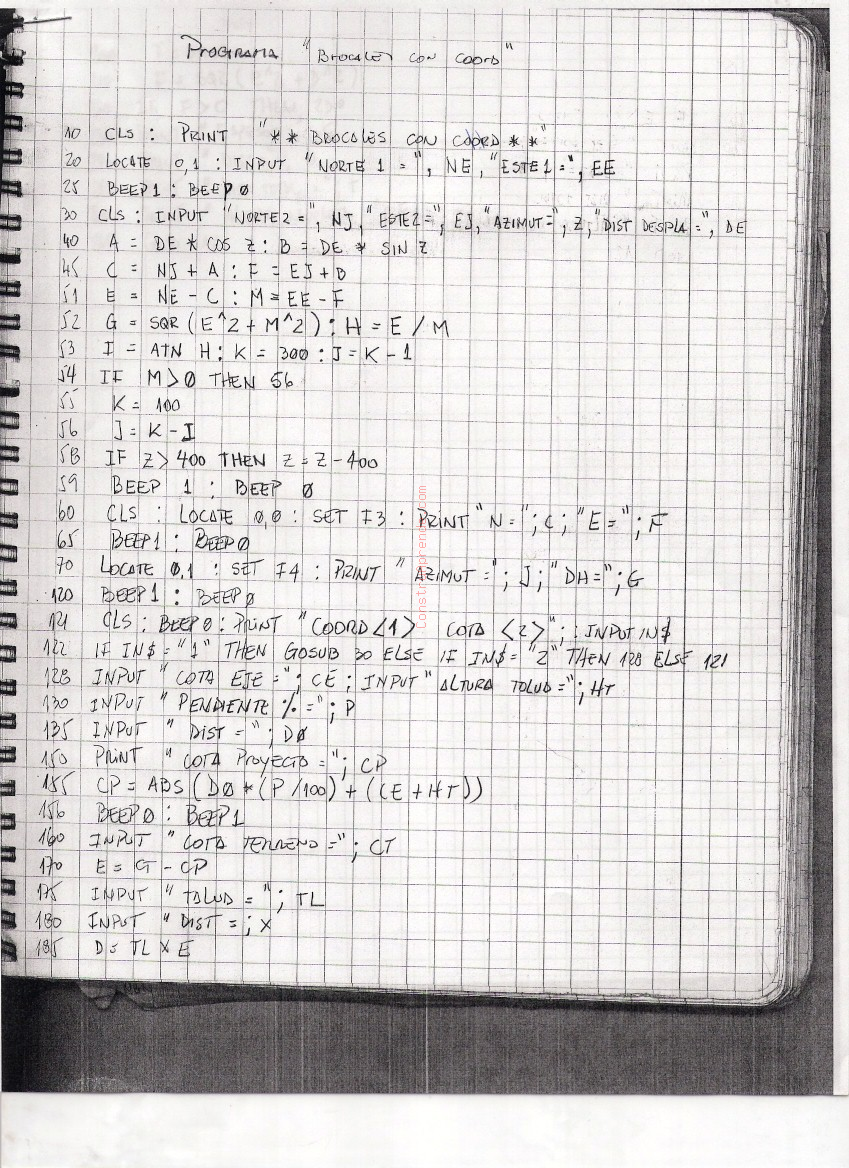 PROGRAMA "BROCALES CON COORD"
10 CLS : PRINT "* * BROCALES CON COORD * *"
20 LOCATE 0,1 : INPUT "NORTE 1 = ", NE, "ESTE1=", EE
25 BEEP1 : BEEP 0
30 CLS : INPUT "NORTE2=", NJ, "ESTE2=", EJ, "AZIMUT=", Z; "DIST DESPLA =", DE
40 A = DE * COS Z : B = DE * SIN Z
45 C = NJ + A : F = EJ + B
51 E = NE - C : M = EE - F
52 G = SQR (E^2 + M^2) : H = E / M
53 I = ATN H : K = 300 : J = K - 1
54 IF M > 0 THEN 56
55 K = 100
56 J = K - I
58 IF Z > 400 THEN Z = Z - 400
59 BEEP 1 : BEEP 0
60 CLS : LOCATE 0,0 : SET F3 : PRINT "N = "; C ; "E = "; F
65 BEEP1 : BEEP0
70 LOCATE 0,1 : SET F4 : PRINT "AZIMUT ="; J ; "DH="; G
120 BEEP1 : BEEP0
121 CLS : BEEP0 : PRINT "COORD <1> COTA <2>"; : INPUT IN$
122 IF IN$ = "1" THEN GOSUB 30 ELSE IF IN$ = "2" THEN 128 ELSE 121
128 INPUT "COTA EJE ="; CE ; INPUT "ALTURA TALUD ="; HT
130 INPUT "PENDIENTE % ="; P
135 INPUT "DIST = "; D0
150 PRINT "COTA PROYECTO ="; CP
155 CP = ABS (D0 * (P /100) + (CE + HT))
156 BEEP0 : BEEP1
160 INPUT "COTA TERRENO ="; CT
170 E = CT - CP
175 INPUT "TALUD = "; TL
180 INPUT "DIST = ; X
185 D = TL X E
construaprende.com